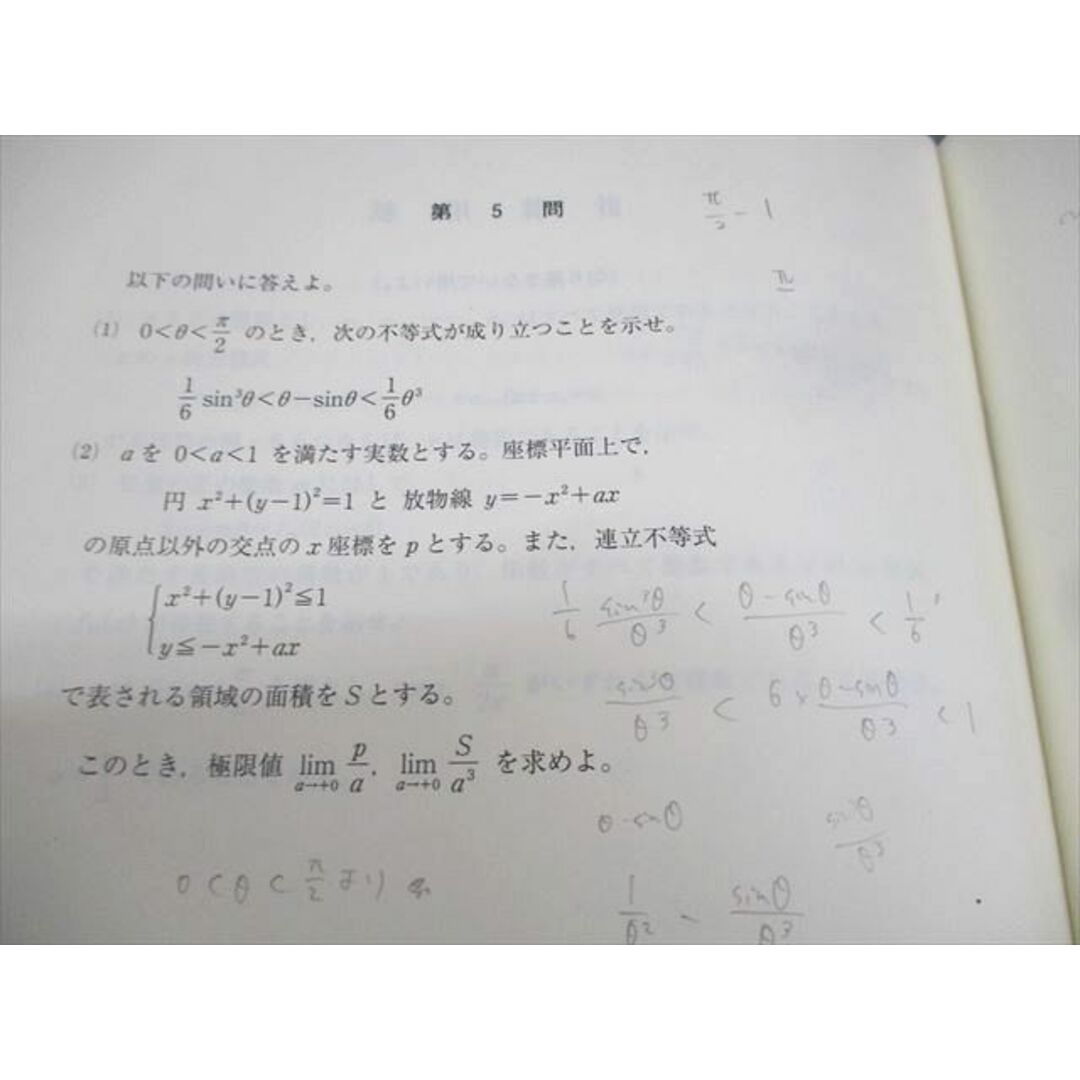 第 5 問
π/2 - 1
π
以下の問いに答えよ。
(1) 0<θ<π/2 のとき，次の不等式が成り立つことを示せ。
1/6 sin³θ<θ-sinθ<1/6 θ³
(2) aを 0<a<1 を満たす実数とする。座標平面上で，
円 x²+(y-1)²=1 と 放物線 y=-x²+ax
の原点以外の交点のx座標をpとする。また，連立不等式
x²+(y-1)²≦1
y≦-x²+ax
1/6 sin³θ/θ³ < θ-sinθ/θ³ < 1/6
で表される領域の面積をSとする。
sin³θ/θ³ < 6× θ-sinθ/θ³ < 1
このとき，極限値 lim a→+0 p/a，lim a→+0 S/a³ を求めよ。
θ-sinθ
sin³θ/θ³
0<θ<π/2 より
1/θ² - sinθ/θ³